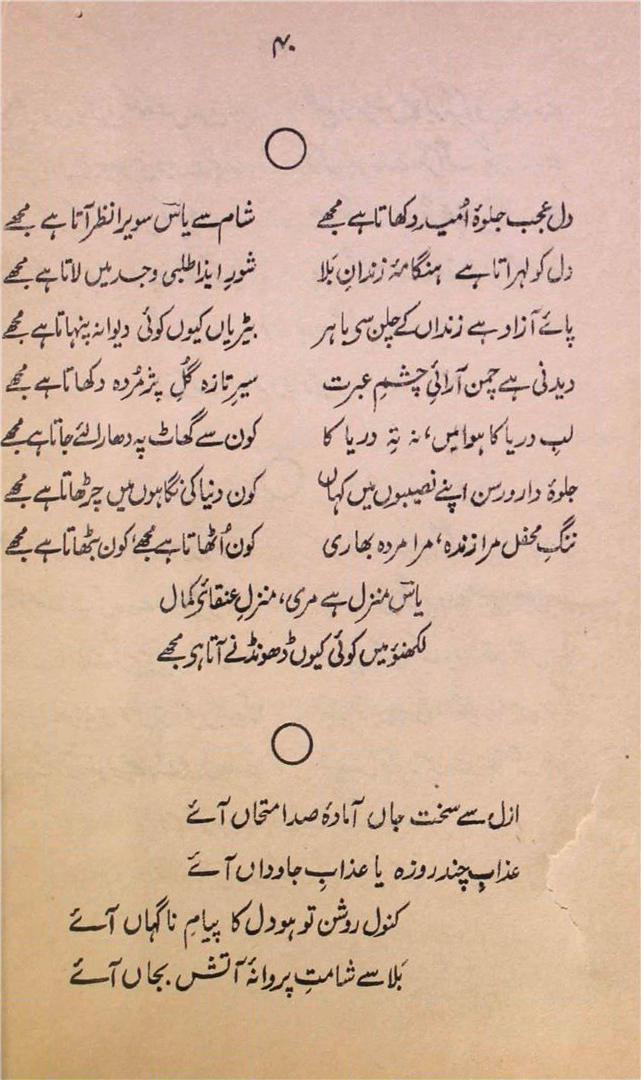 ۴۰
دل عجب جلوۂ اُمید دکھاتا ہے مجھے شام سے یاسؔ سویرا نظر آتا ہے مجھے
دل کو لہراتا ہے ہنگامۂ زندانِ بَلا شورِ ایذا طلبی وجد میں لاتا ہے مجھے
پائے آزاد ہے زنداں کے چلن سی باہر بیڑیاں کیوں کوئی دیوانہ پنہاتا ہے مجھے
دیدنی ہے چمن آرائیِ چشمِ عبرت سیرِ تازہ گُلِ پژمُردہ دکھاتا ہے مجھے
لبِ دریا کا ہوا میں، نہ تِہ دریا کا کون سے گھاٹ پہ دھارا لئے جاتا ہے مجھے
جلوۂ دار و رسن اپنے نصیبوں میں کہاں کون دنیا کی نگاہوں میں چڑھاتا ہے مجھے
ننگِ محفل مرا زندہ، مرا مردہ بھاری کون اُٹھاتا ہے مجھے، کون بٹھاتا ہے مجھے
یاسؔ منزل ہے مری، منزلِ عنقائے کمال
لکھنؤ میں کوئی کیوں ڈھونڈنے آتا ہو مجھے
ازل سے سخت جاں آمادۂ صد امتحاں آئے
عذابِ چند روزہ یا عذابِ جاوداں آئے
کنول روشن تو ہو دل کا پیامِ ناگہاں آئے
بَلا سے شامتِ پروانۂ آتش بجاں آئے